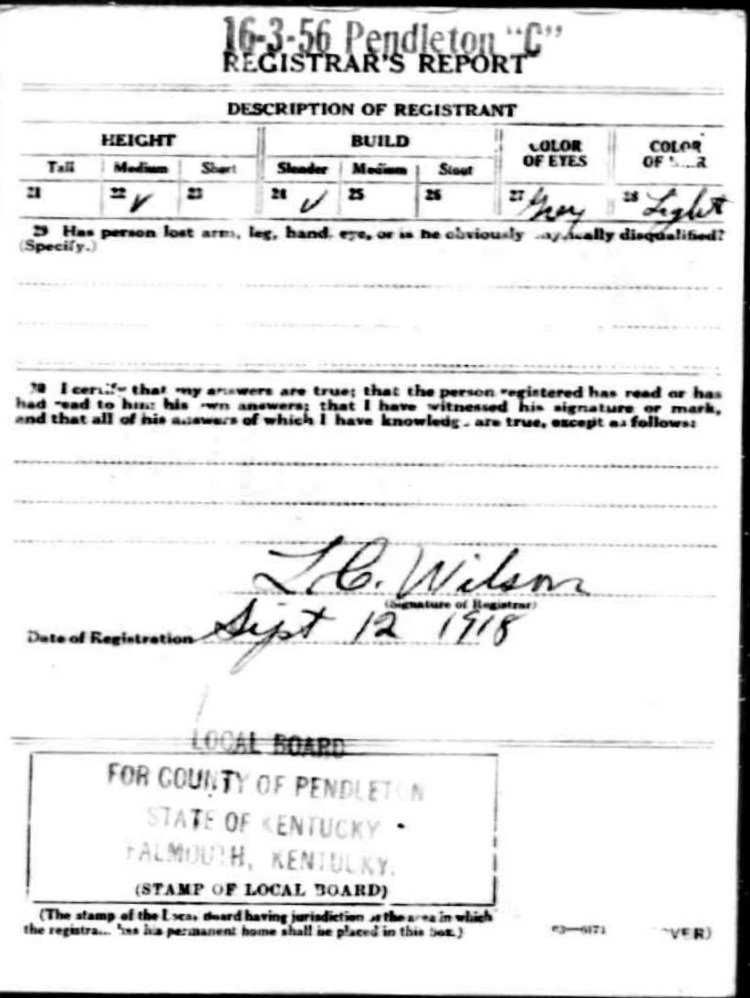 16-3-56 Pendleton "C"
REGISTRAR'S REPORT
DESCRIPTION OF REGISTRANT
HEIGHT BUILD COLOR OF EYES COLOR OF
Tall Medium Short Slender Medium Stout
21 22 ✓ 23 24 ✓ 25 26 27 Grey 28 Light
29 Has person lost arm, leg, hand, eye, or is he obviously physically disqualified?
(Specify.)
30 I certify that my answers are true; that the person registered has read or has
had read to him his own answers; that I have witnessed his signature or mark,
and that all of his answers of which I have knowledge are true, except as follows:
L. C. Wilson
(Signature of Registrar)
Date of Registration Sept 12 1918
LOCAL BOARD
FOR COUNTY OF PENDLETON
STATE OF KENTUCKY
FALMOUTH, KENTUCKY.
(STAMP OF LOCAL BOARD)
(The stamp of the Local Board having jurisdiction of the area in which
the registrant has his permanent home shall be placed in this box.)
03—6171 (OVER)